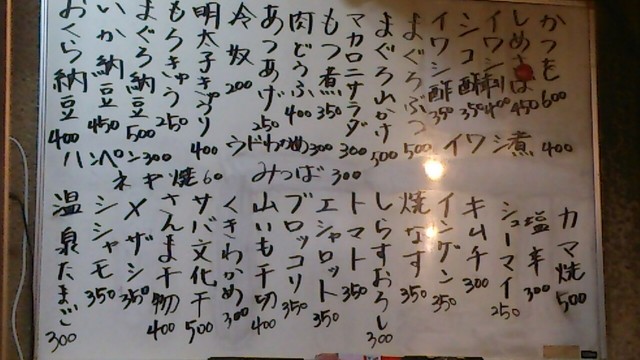 かつを 600
しめさば 450
イワシ刺 400
シコ酢 350
イワシ酢 350
まぐろぶつ 500
まぐろ山かけ 500
マカロニサラダ 300
もつ煮 350
肉どうふ 400
あつあげ 250
冷奴 200
明太子きゅうり 400
もろきゅう 250
まぐろ納豆 500
いか納豆 450
おくら納豆 400
イワシ煮 400
ウドわかめ 300
ハンペン 300
みつば 300
ネギ焼 60
カマ焼 500
塩辛 300
シューマイ 250
キムチ 300
インゲン 350
焼なす 350
しらすおろし 300
トマト 350
エシャロット 350
ブロッコリ 350
山いも千切 400
くきわかめ 300
サバ文化干 500
さんま干物 400
メザシ 350
シシャモ 350
温泉たまご 300